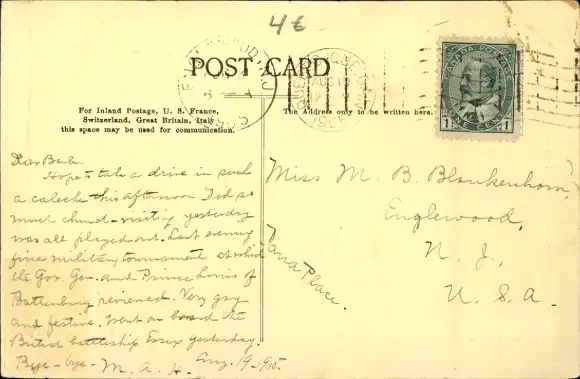 4¢
POST CARD
For Inland Postage, U. S. France,
Switzerland, Great Britain, Italy
this space may be used for communication.
The Address only to be written here.
CANADA POSTAGE
ONE CENT
1
1905
Hope to take a drive in such
a caleche this afternoon. Did so
much church-visiting yesterday
was all played out. Last evening
fine military tournament at which
the Gov. Gen. and Prince Louis of
Battenburg reviewed. Very gay
and festive. Went on board the
British battleship Essex yesterday.
Bye-bye- M. A. H. Aug. 19-1905.
Miss M. B. Blankenhorn,
Englewood,
N. J.,
U. S. A.
Dana Place.